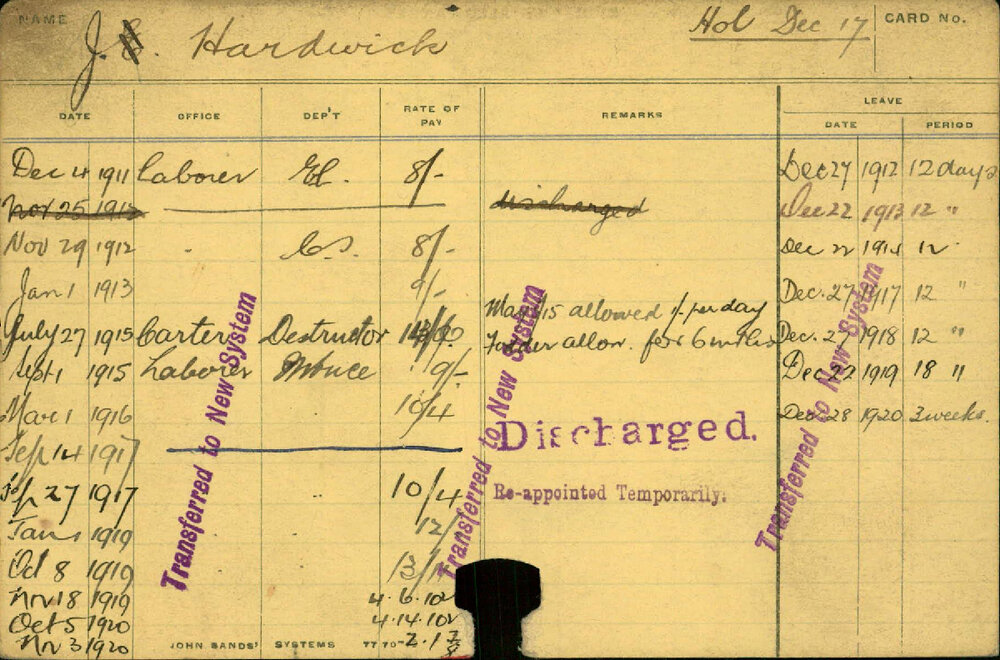 NAME J. Hardwick Hol Dec 17 CARD No.
DATE OFFICE DEP'T RATE OF PAY REMARKS LEAVE
DATE PERIOD
Dec 4 1911 Laborer El. 8/- Dec 27 1912 12 days
Nov 25 1912 discharged Dec 22 1913 12 "
Nov 29 1912 8/- Dec 22 1914 12
Jan 1 1913 9/- Dec. 27 1917 12 "
15 allowed 1/- per day
July 27 1915 Carter Destructor Fodder allow. for 6 mths Dec. 27 1918 12 "
Sept 1 1915 Laborer 9/- Dec 22 1919 18 "
Mar 1 1916 10/4 Dec 28 1920 3 weeks.
Sep 14 1917 Discharged.
Sep 27 1917 10/4 Re-appointed Temporarily.
Jan 1 1919 12/
Oct 8 1919 13/
Nov 18 1919 4.6.10
Oct 5 1920 4.14.10
Nov 3 1920
Transferred to New System
Transferred to New System
Transferred to New System
JOHN SANDS' SYSTEMS 7770